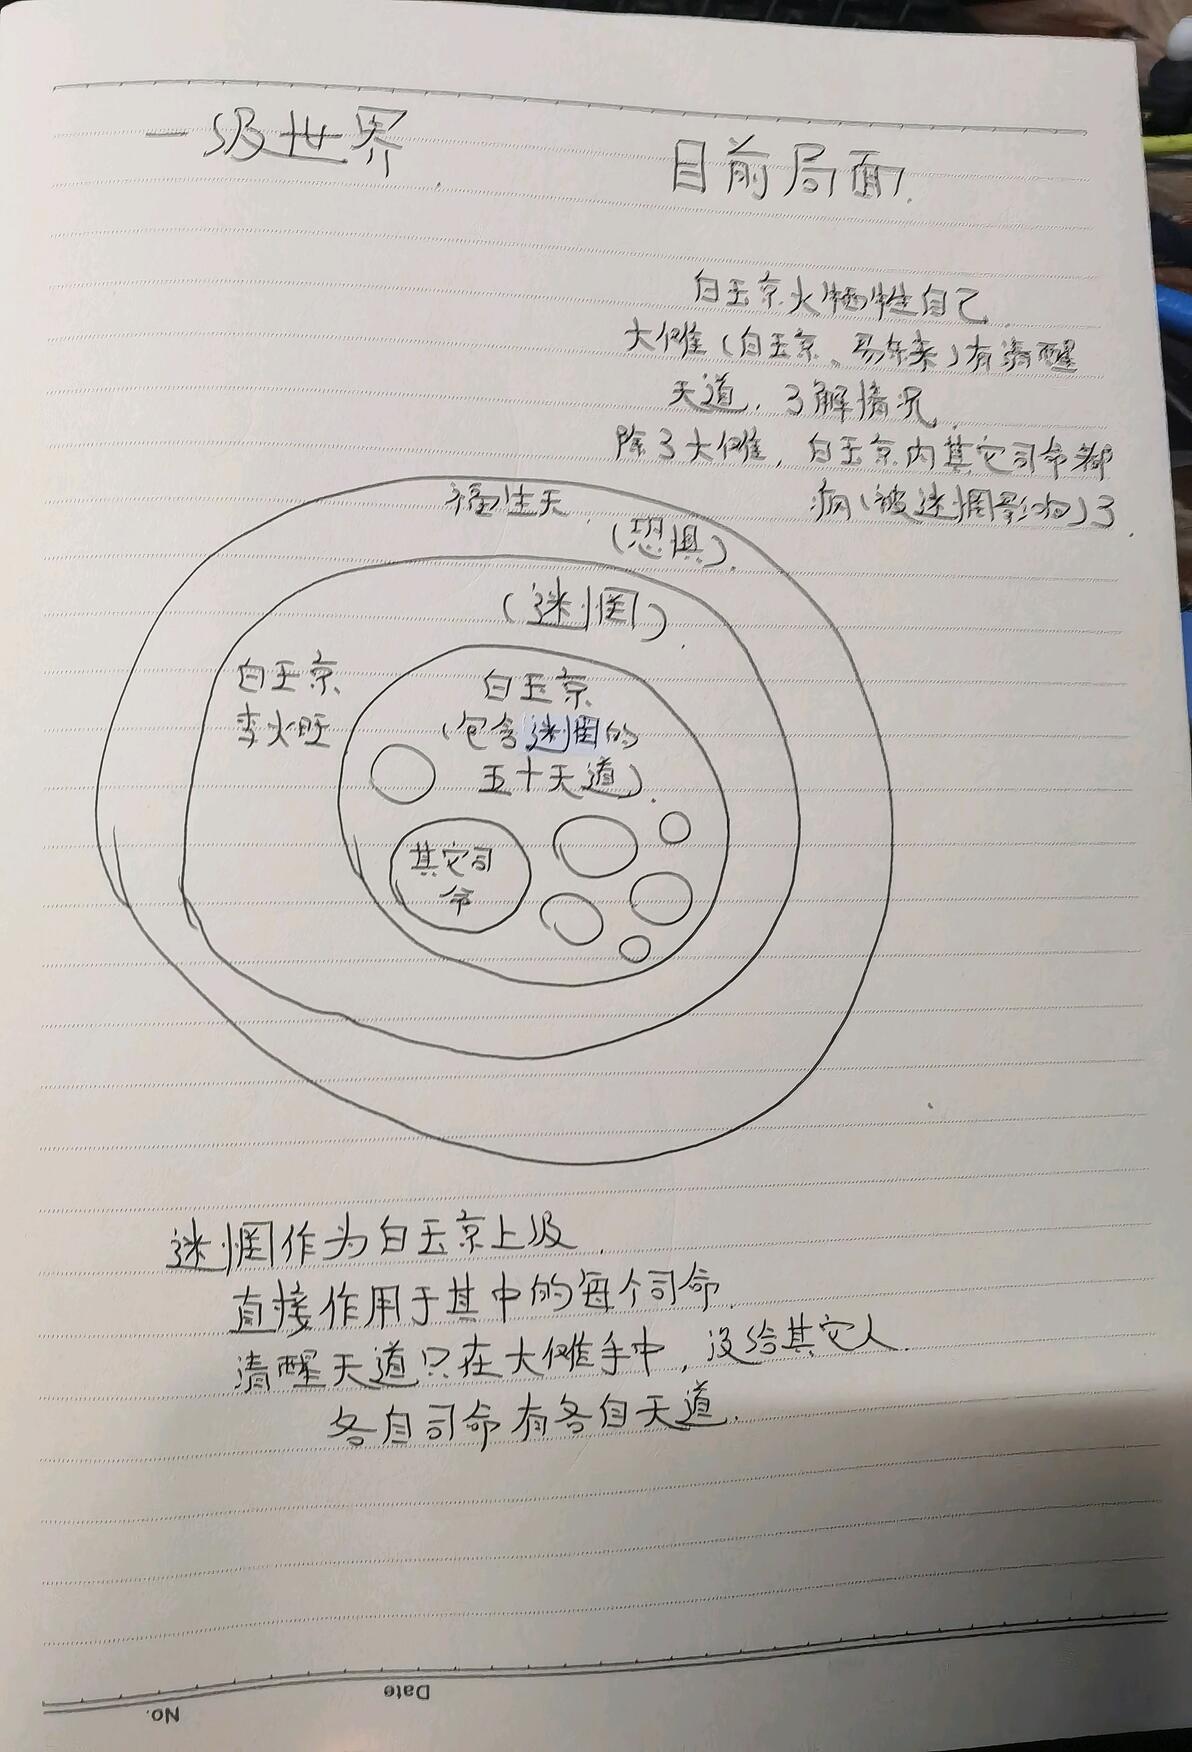 一级世界
目前局面.
白玉京火牺牲自己
大傩(白玉京、易东来)有清醒
天道.了解情况.
除了大傩,白玉京内其它司命都
病(被迷惘影响)了.
福生天
(恐惧).
(迷惘)
白玉京
李火旺
白玉京
(包含迷惘的
五十天道).
其它司
命
迷惘作为白玉京上级.
直接作用于其中的每个司命.
清醒天道只在大傩手中,没给其它人.
各自司命有各自天道.
Date
No.